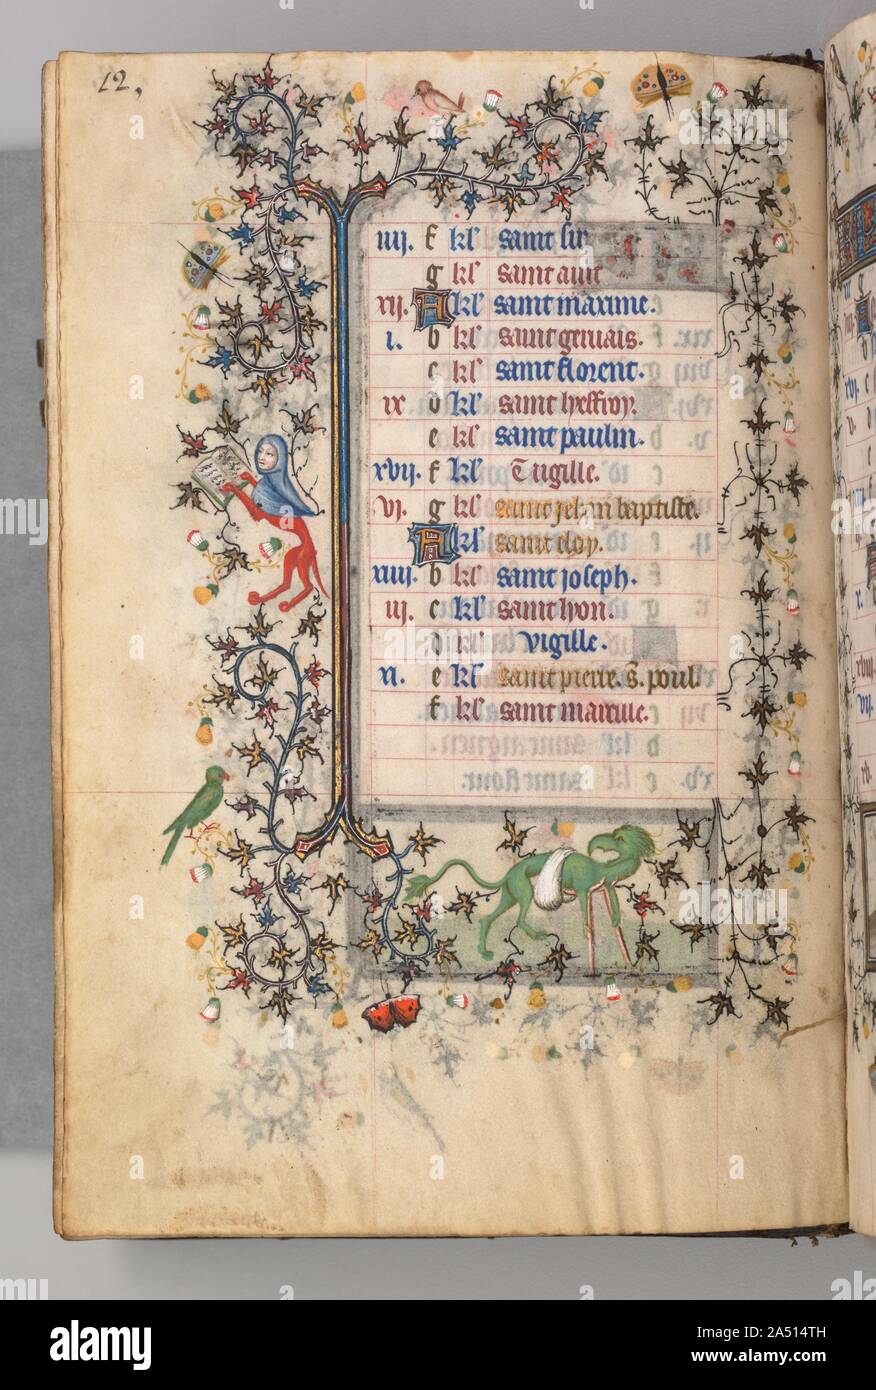 12,
iiij. f kl' saint sir
g kl' saint auit
vij. A kl' saint maxime.
i. b kl' saint geruais.
c kl' saint florent.
ix d kl' saint lyeffroy.
e kl' saint paulin.
xvij. f kl' vigille.
vj. g kl' saint jehan baptiste.
A kl' saint eloy.
xiiij. b kl' saint joseph.
iij. c kl' saint lyon.
d kl' vigille.
vi. e kl' saint pierre. s. poul.
f kl' saint marcile.
alamy
Image ID: 2A514TH
www.alamy.com